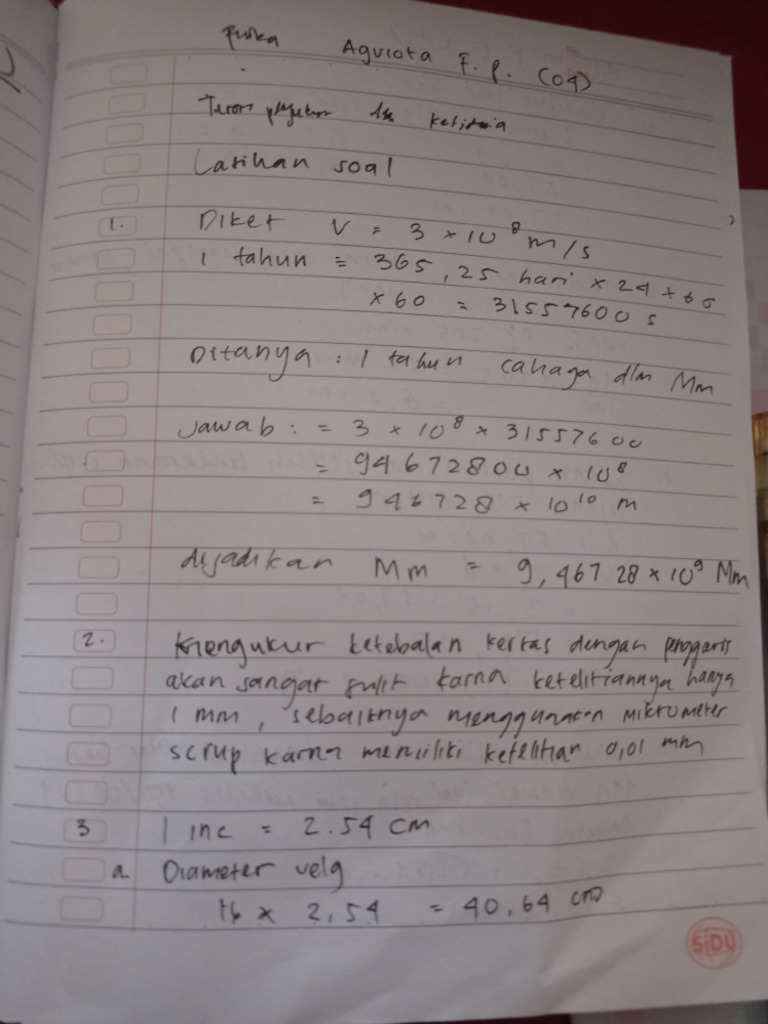 Fisika Agviota F. P. (04)
Latihan soal
1. Diket V = 3 × 10⁸ m/s
1 tahun = 365,25 hari × 24 × 60
× 60 = 31557600 s
Ditanya : 1 tahun cahaga dlm Mm
Jawab : = 3 × 10⁸ × 31557600
= 94672800 × 10⁸
= 946728 × 10¹⁰ m
dijadikan Mm = 9,46728 × 10⁹ Mm
2. Mengukur ketebalan kertas dengan penggaris
akan sangat sulit karna ketelitiannya hanya
1 mm, sebaiknya menggunakan mikrometer
scrup karna memiliki ketelitian 0,01 mm
3 1 inc = 2.54 cm
a Diameter velg
16 × 2,54 = 40,64 cm
SiDU